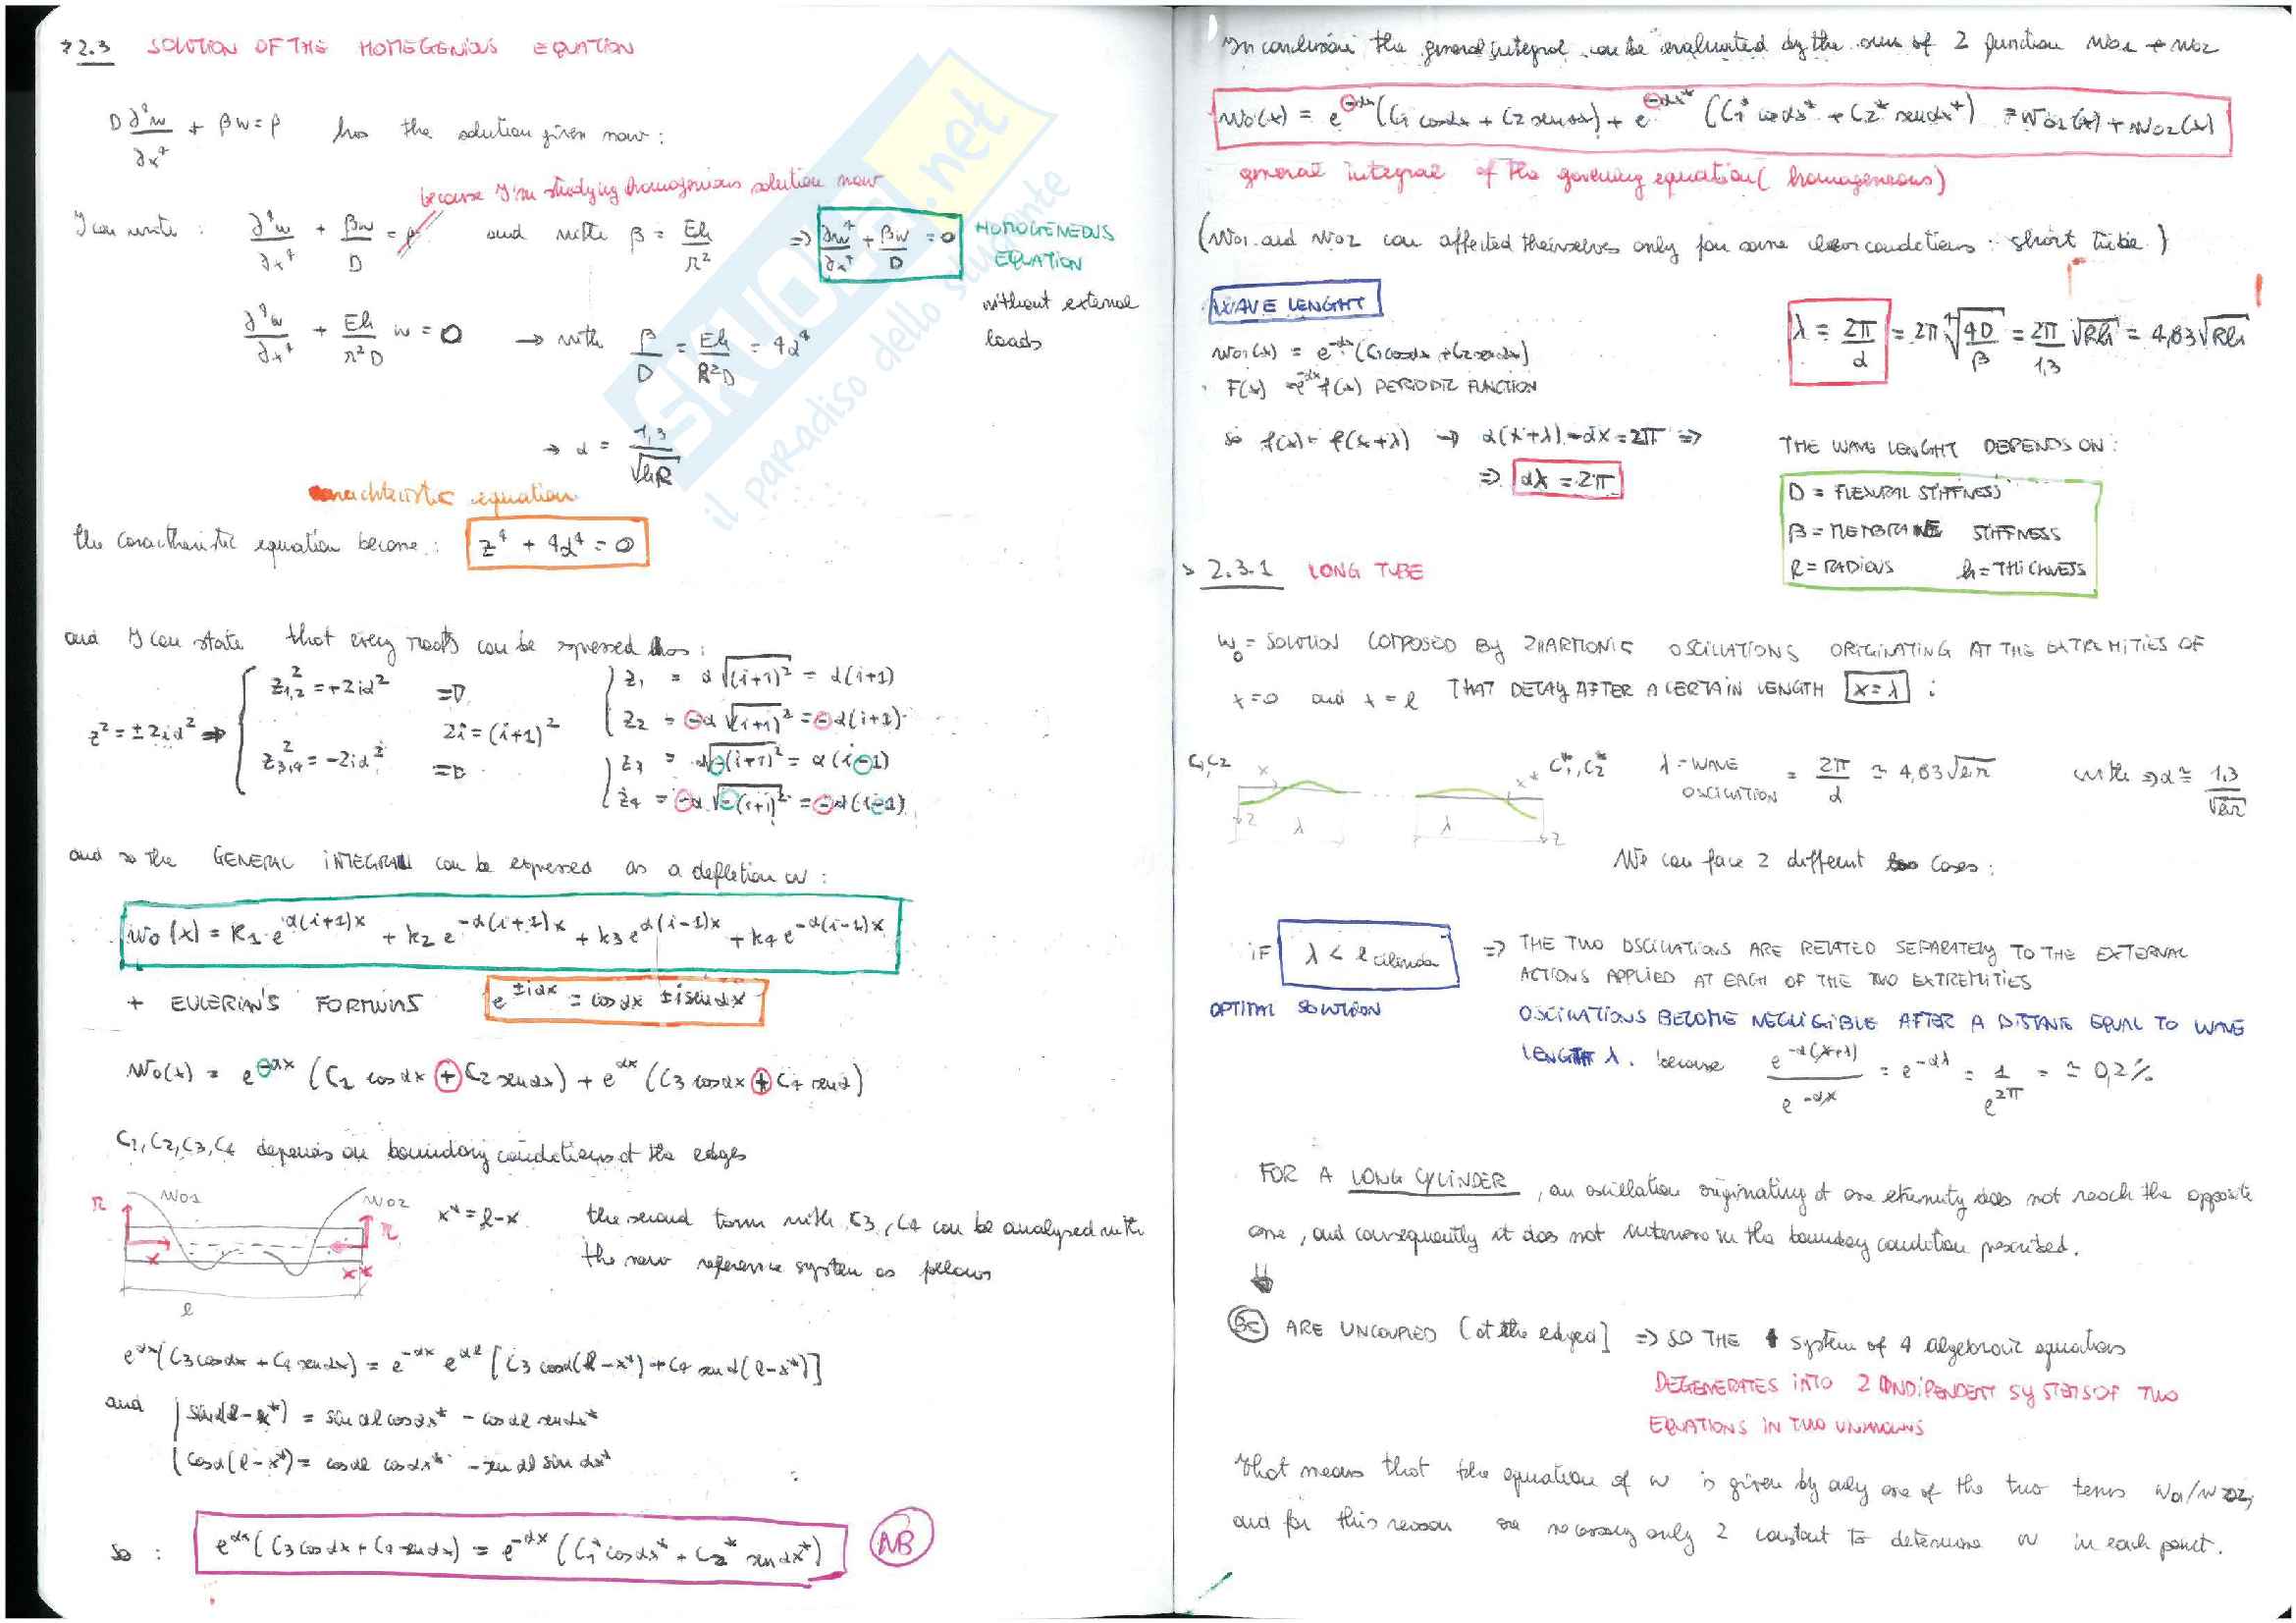 2.3 SOLUTION OF THE HOMOGENIOUS EQUATION
D ∂⁴w/∂x⁴ + βw = p has the solution given now:
because I'm studying homogenious solution now
I can write: ∂⁴w/∂x⁴ + βw/D = p and with β = Eh/r² => ∂w⁴/∂x⁴ + βw/D = 0 HOMOGENEOUS EQUATION
without external loads
∂⁴w/∂x⁴ + Eh/r²D w = 0 → with β/D = Eh/R²D = 4α⁴
→ α = 1,3/√hR
equation
the caractheristic equation become: z⁴ + 4α⁴ = 0
and I can state that every roots can be expressed has:
z² = ±2iα² => z²1,2 = +2iα² => z1 = α√(i+1)² = α(i+1)
2i = (i+1)² z2 = -α√(i+1)² = -α(i+1)
z²3,4 = -2iα² => z3 = α√-(i+1)² = α(i-1)
z4 = -α√-(i+1)² = -α(i-1)
and so the GENERAL INTEGRAL can be expressed as a defletion w:
w0(x) = K1 e^α(i+1)x + k2 e^-α(i+1)x + k3 e^α(i-1)x + k4 e^-α(i-1)x
+ EULERIAN'S FORMULAS e^±iαx = cos αx ± i sen αx
w0(x) = e^-αx (C1 cos αx + C2 sen αx) + e^αx (C3 cos αx + C4 sen α)
C1, C2, C3, C4 depends on boundary conditions at the edges
w01 w02 x* = l-x the second term with C3, C4 can be analysed with
the new reference system as follows
x x*
l
e^αx (C3 cos αx + C4 sen αx) = e^-αx e^αl [C3 cos α(l-x*) + C4 sen α(l-x*)]
and sin α(l-x*) = sin αl cos αx* - cos αl sen αx*
cos α(l-x*) = cos αl cos αx* - sen αl sin αx*
so: e^αx (C3 cos αx + C4 sen αx) = e^-αx (C1* cos αx* + C2* sen αx*) NB
In conclusion the general integral can be evaluated by the sum of 2 function w01 + w02
w0(x) = e^-αx (C1 cos αx + C2 sen αx) + e^-αx* (C1* cos αx* + C2* sen αx*) = w01(x) + w02(x)
general integral of the governing equation (homogeneous)
(w01 and w02 can affected theirselves only for some conditions: short tube)
WAVE LENGHT
w01(x) = e^-αx (C1 cos αx + C2 sen αx)
F(x) = e^-αx f(x) PERIODIC FUNCTION
so f(x) = f(x+λ) → α(x+λ) - αx = 2π =>
=> αλ = 2π
λ = 2π/α = 2π ⁴√4D/β = 2π/1,3 √Rh = 4,83√Rh
THE WAVE LENGHT DEPENDS ON:
D = FLEXURAL STIFFNESS
β = MEMBRANE STIFFNESS
R = RADIOUS h = THICKNESS
2.3.1 LONG TUBE
w0 = SOLUTION COMPOSED BY 2 HARMONIC OSCILLATIONS ORIGINATING AT THE EXTREMITIES OF
x=0 and x=l THAT DECAY AFTER A CERTAIN LENGTH x=λ:
C1, C2 x z λ
C1*, C2* x* z λ
λ = WAVE OSCILLATION = 2π/α ≃ 4,83√hr with => α ≅ 1,3/√hr
We can face 2 different cases:
IF λ < l cilinder => THE TWO OSCILLATIONS ARE RELATED SEPARATELY TO THE EXTERNAL
ACTIONS APPLIED AT EACH OF THE TWO EXTREMITIES
OPTIMAL SOLUTION
OSCILLATIONS BECOME NEGLIGIBLE AFTER A DISTANE EQUAL TO WAVE
LENGTH λ. because e^-α(x+λ)/e^-αx = e^-αλ = 1/e^2π = ≃ 0,2%
FOR A LONG CYLINDER, an oscillation originating at one extremity does not reach the opposite
one, and consequently it does not interfere in the boundary condition prescribed.
⇓
BC ARE UNCOUPLED [at the edges] => SO THE system of 4 algebraic equations
DEGENERATES INTO 2 INDIPENDENT SYSTEMS OF TWO
EQUATIONS IN TWO UNKNOWNS
that means that the equation of w is given by only one of the two terms w01/w02,
and for this reason are necessary only 2 constant to determine w in each point.
SKUOLA.net
il paradiso dello studente